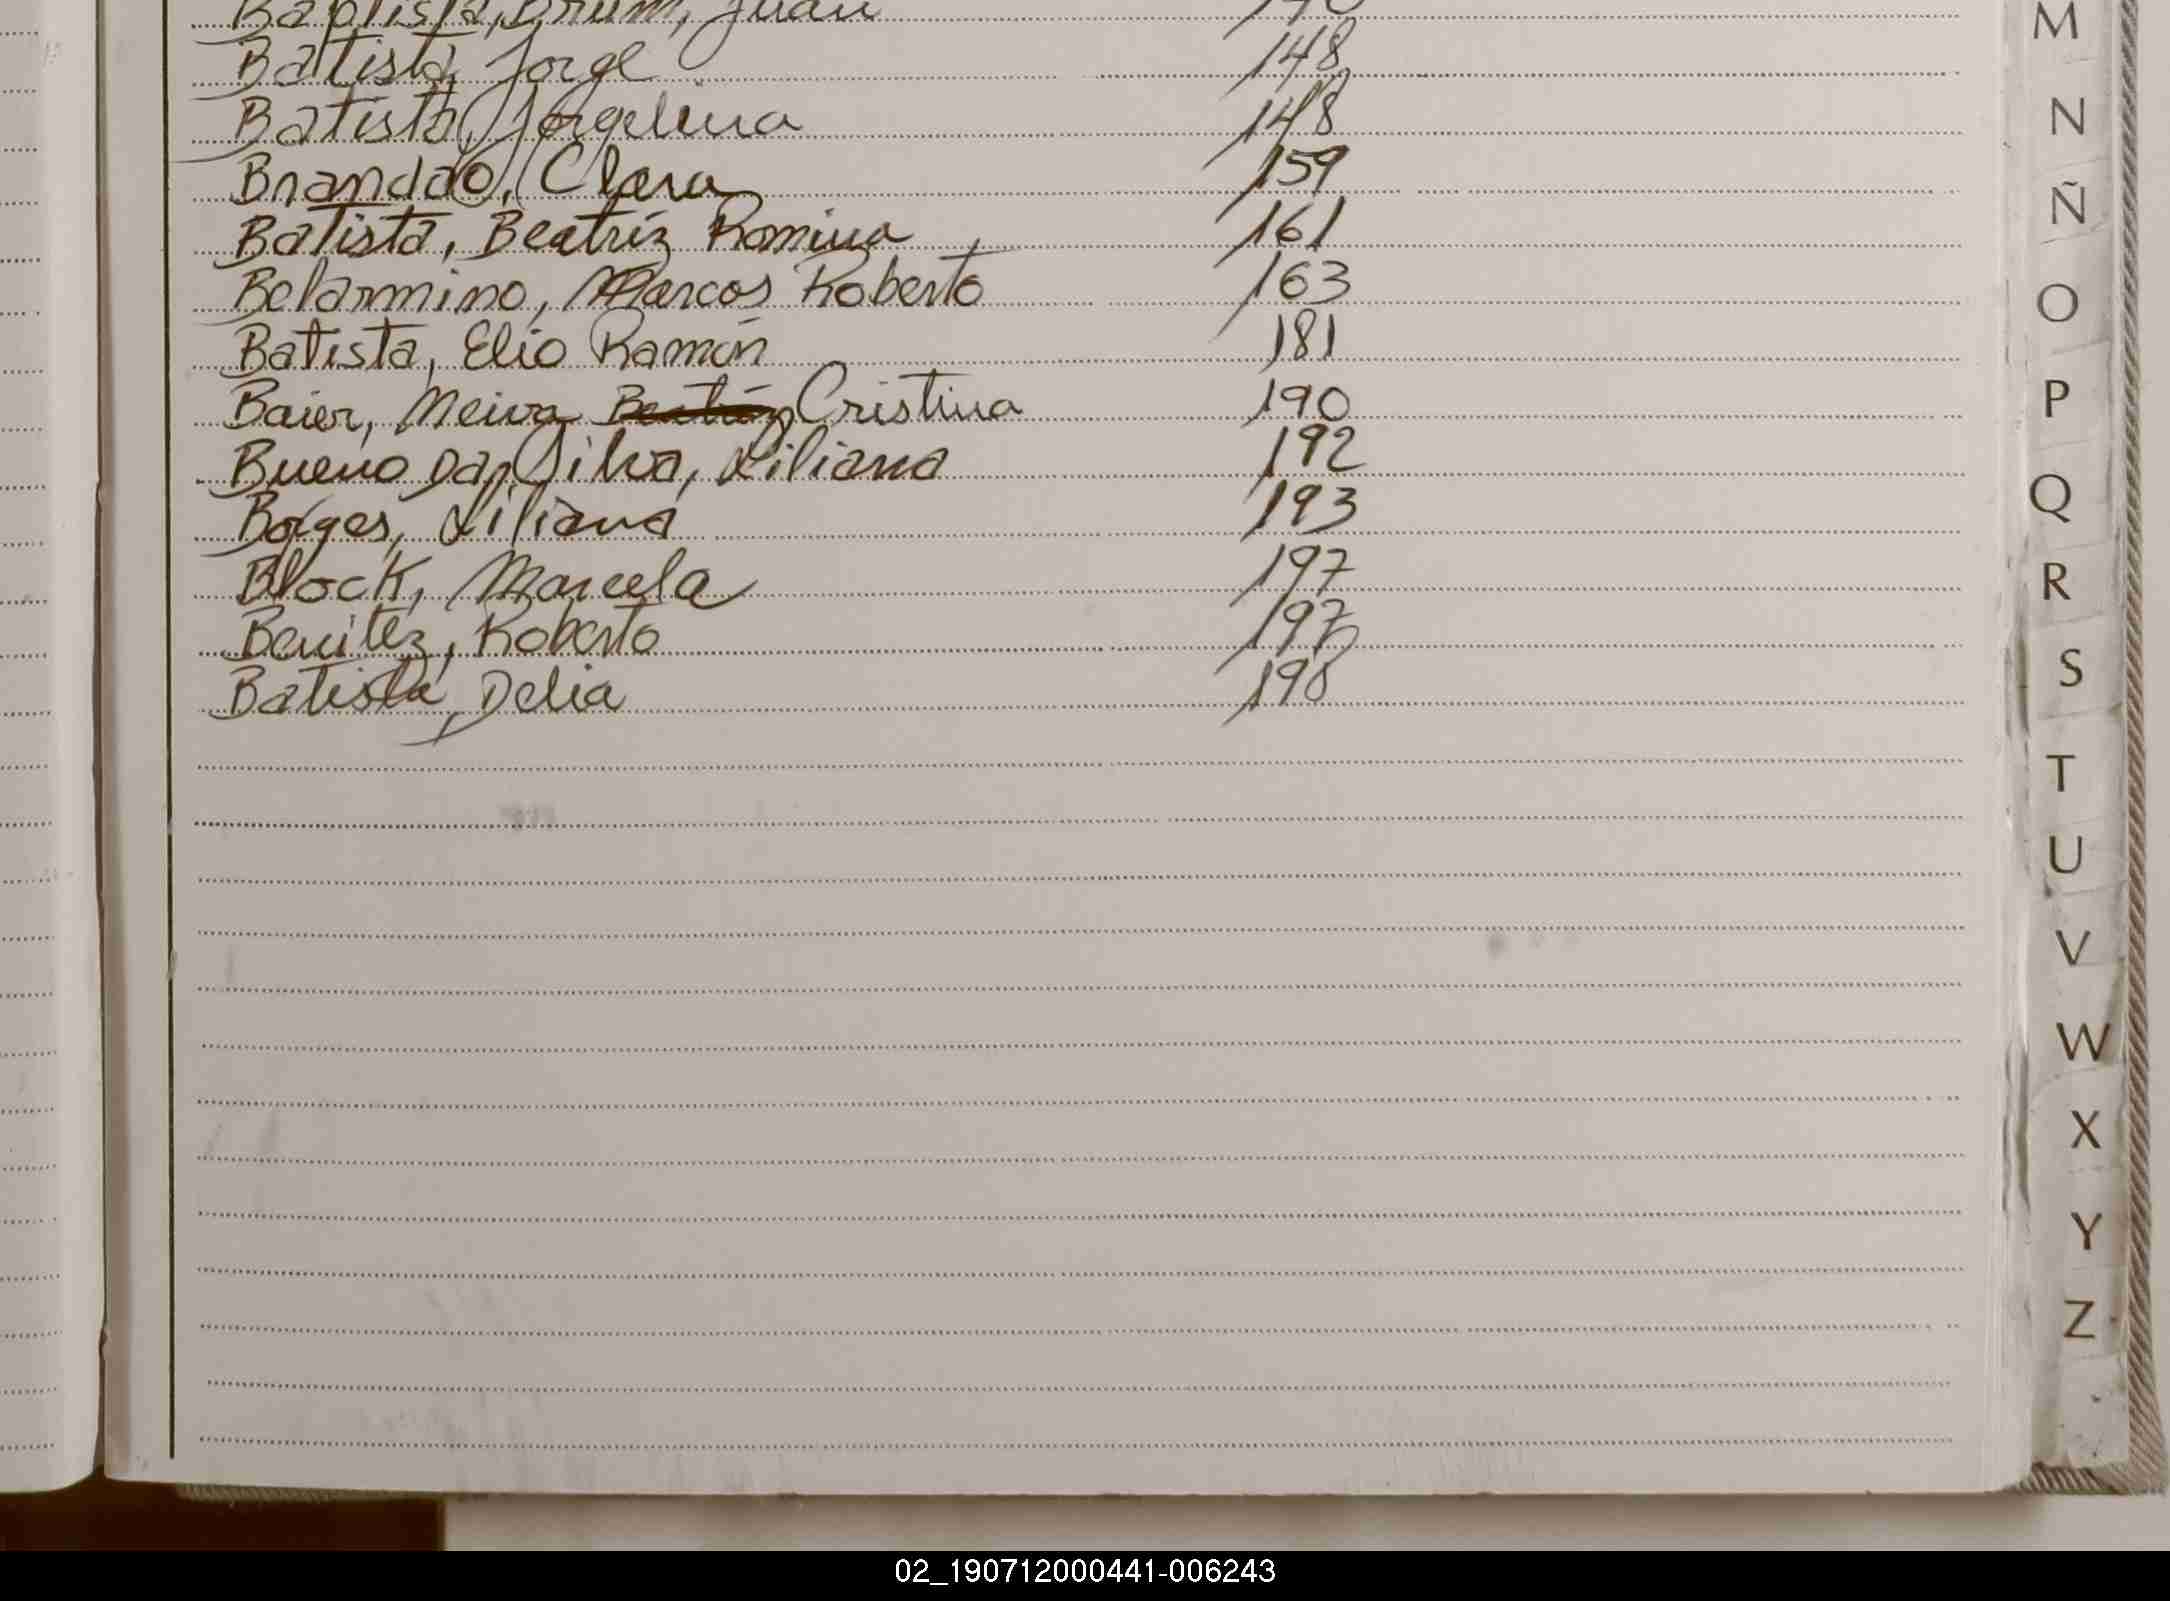 Baptista, Brum, Juan
Batista, Jorge 148
Batista, Jorgelina 148
Brandao, Clara 159
Batista, Beatríz Romina 161
Belarmino, Marcos Roberto 163
Batista, Elio Ramón 181
Baier, Neiva Beatríz Cristina 190
Bueno Da Silva, Liliana 192
Borges, Liliana 193
Block, Marcela 197
Benitez, Roberto 197
Batista, Delia 198
M
N
Ñ
O
P
Q
R
S
T
U
V
W
X
Y
Z
02_190712000441-006243